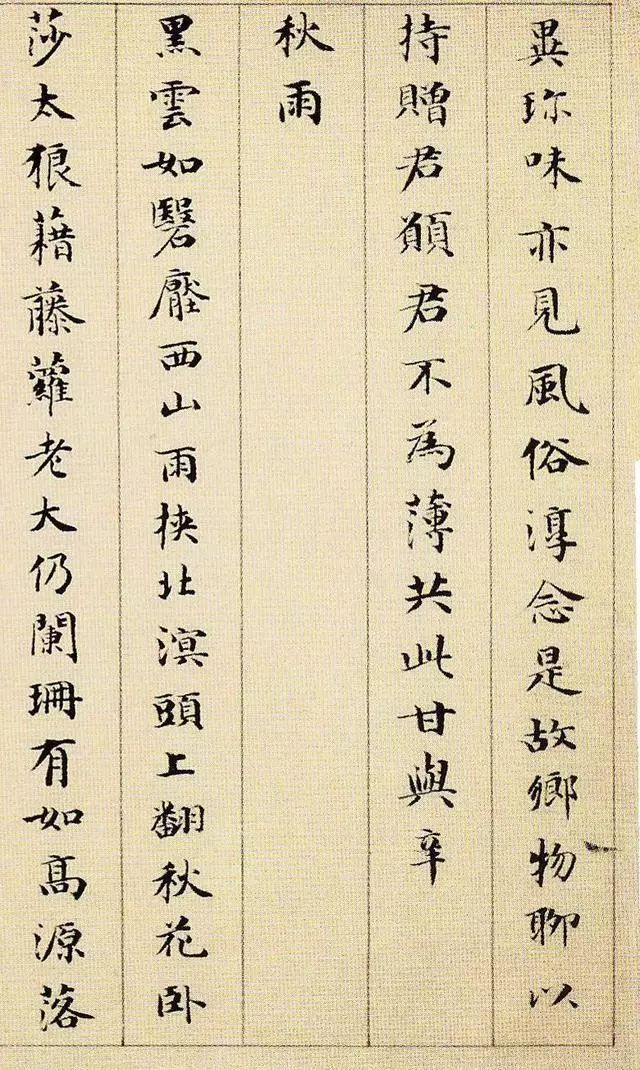 異珎味亦見風俗淳念是故鄉物聊以
持贈君願君不為薄共此甘與辛
秋雨
黑雲如翳壓西山雨挾北溟頭上翻秋花卧
莎太狼藉藤蘿老大仍闌珊有如高源落